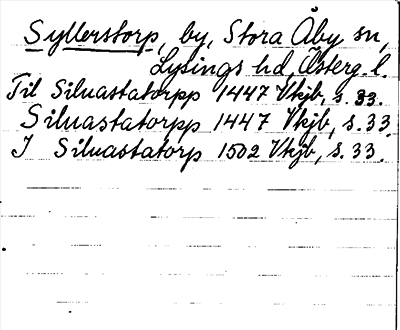 Syllerstorp, by, Stora Åby sn,
Lysings hd, Österg. l.
Til Siluastatorpp 1447 Vkjb, s. 33.
Siluastatorpp 1447 Vkjb, s. 33.
I Siluastatorp 1502 Vkjb, s. 33.